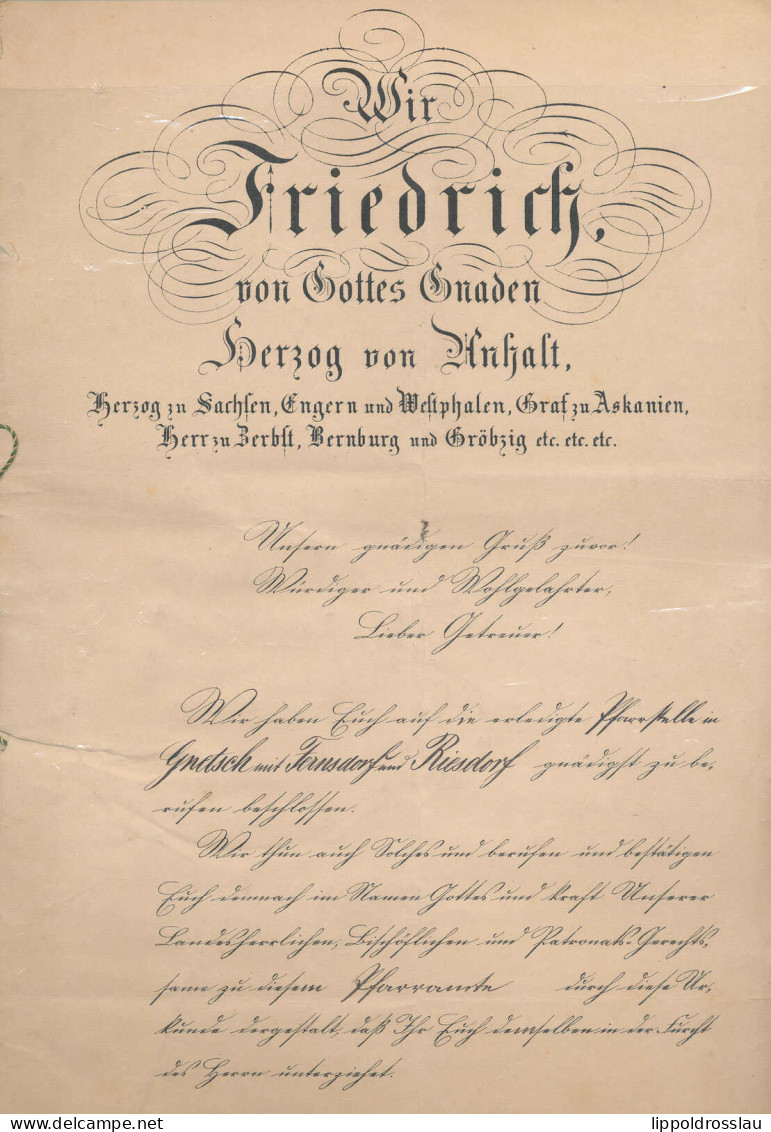 Wir
Friedrich,
von Gottes Gnaden
Herzog von Anhalt,
Herzog zu Sachsen, Engern und Westphalen, Graf zu Askanien,
Herr zu Zerbst, Bernburg und Gröbzig etc. etc. etc.
Unsern gnädigen Gruß zuvor!
Würdiger und Wohlgelahrter,
Lieber Getreuer!
Wir haben Euch auf die erledigte Pfarrstelle in
Gnetsch mit Fernsdorf und Riesdorf gnädigst zu be-
rufen beschlossen.
Wir thun auch Solches und berufen und bestätigen
Euch demnach im Namen Gottes und kraft Unserer
Landesherrlichen, Bischöflichen und Patronats-Gerecht-
same zu diesem Pfarramte durch diese Ur-
kunde dergestalt, daß Ihr Euch demselben in der Furcht
des Herrn unterziehet.
© delcampe.net
lippoldrosslau